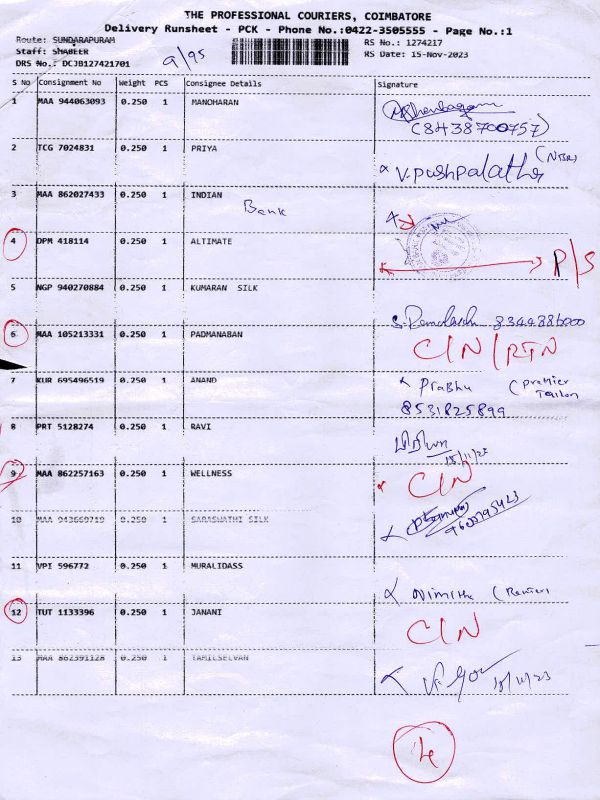 THE PROFESSIONAL COURIERS, COIMBATORE
Delivery Runsheet - PCK - Phone No.:0422-3505555 - Page No.:1
Route: SUNDARAPURAM RS No.: 1274217
Staff: SHABEER RS Date: 15-Nov-2023
DRS No.: DCJB127421701 9/95
S No Consignment No Weight PCS Consignee Details Signature
1 MAA 944063093 0.250 1 MANOHARAN
(8438700757)
2 TCG 7024831 0.250 1 PRIYA V. Pushpalatha
3 MAA 862027433 0.250 1 INDIAN
Bank
4 DPM 418114 0.250 1 ALTIMATE P/S
5 NGP 940270884 0.250 1 KUMARAN SILK
6 MAA 105213331 0.250 1 PADMANABAN C/N / RTN
7 KUR 695496519 0.250 1 ANAND Prabhu (Premier
8531825899
8 PRT 5128274 0.250 1 RAVI
15/11/23
9 MAA 862257163 0.250 1 WELLNESS C/N
10 MAA 943669719 0.250 1 SARASWATHI SILK
11 VPI 596772 0.250 1 MURALIDASS
12 TUT 1133396 0.250 1 JANANI C/N
13 MAA 862391128 0.250 1 TAMILSELVAN